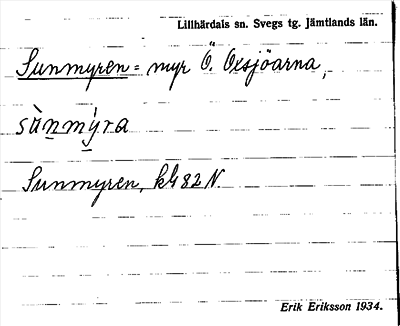 Lillhärdals sn. Svegs tg. Jämtlands län.
Sunmyren = myr Ö. Oxsjöarna,
sùnmýra
Sunmyren, kbl 82 N.
Erik Eriksson 1934.